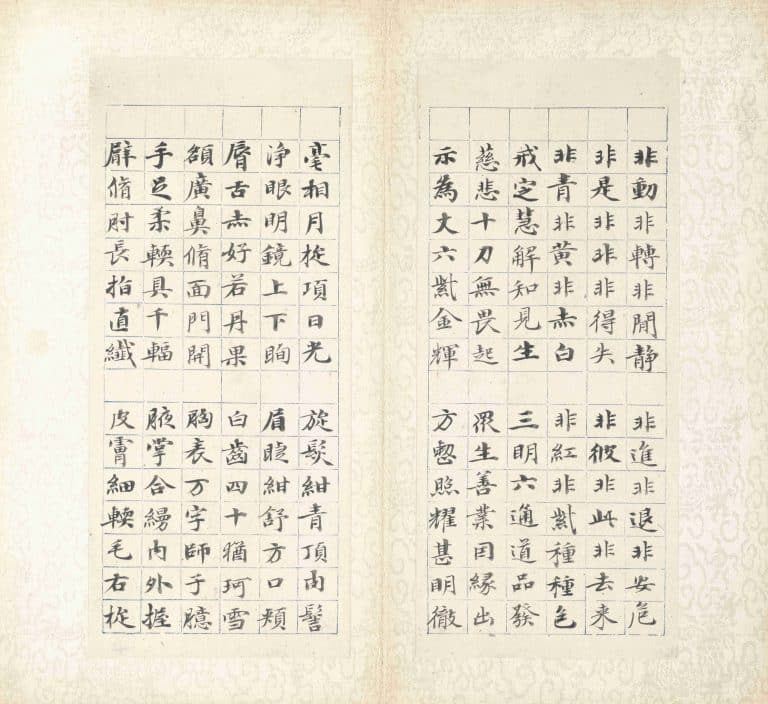 非動非轉非閒静 非進非退非安危
非是非非非得失 非彼非此非去来
非青非黃非赤白 非紅非紫種種色
戒定慧解知見生 三明六通道品發
慈悲十力無畏起 眾生善業因緣出
示為丈六紫金輝 方整照耀甚明徹
毫相月旋項日光 旋髮紺青頂肉髻
淨眼明鏡上下眴 眉睫紺舒方口頰
脣舌赤好若丹果 白齒四十猶珂雪
額廣鼻脩面門開 胸表万字師子臆
手足柔輭具千輻 腋掌合縵內外握
臂脩肘長指直纖 皮膚細輭毛右旋